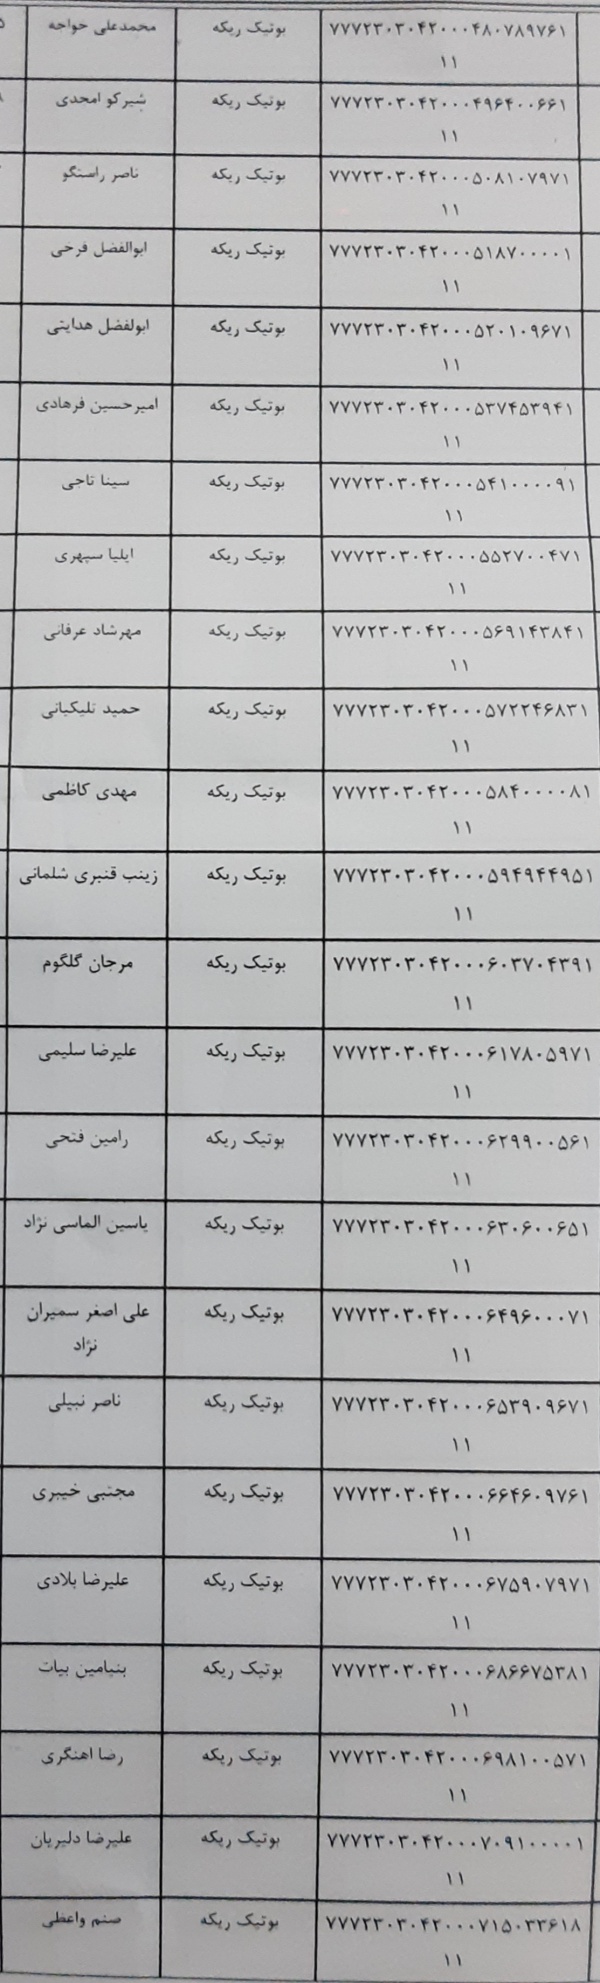 ۷۷۷۲۳۰۳۰۴۲۰۰۰۴۸۰۷۸۹۷۶۱ بوتیک ریکه محمدعلی خواجه
۱۱
۷۷۷۲۳۰۳۰۴۲۰۰۰۴۹۶۴۰۰۶۶۱ بوتیک ریکه شیرکو امجدی
۱۱
۷۷۷۲۳۰۳۰۴۲۰۰۰۵۰۸۱۰۷۹۷۱ بوتیک ریکه ناصر راستگو
۱۱
۷۷۷۲۳۰۳۰۴۲۰۰۰۵۱۸۷۰۰۰۰۱ بوتیک ریکه ابوالفضل فرحی
۱۱
۷۷۷۲۳۰۳۰۴۲۰۰۰۵۲۰۱۰۹۶۷۱ بوتیک ریکه ابولفضل هدایتی
۱۱
۷۷۷۲۳۰۳۰۴۲۰۰۰۵۳۷۴۵۳۹۴۱ بوتیک ریکه امیرحسین فرهادی
۱۱
۷۷۷۲۳۰۳۰۴۲۰۰۰۵۴۱۰۰۰۰۹۱ بوتیک ریکه سینا تاجی
۱۱
۷۷۷۲۳۰۳۰۴۲۰۰۰۵۵۲۷۰۰۴۷۱ بوتیک ریکه ایلیا سپهری
۱۱
۷۷۷۲۳۰۳۰۴۲۰۰۰۵۶۹۱۴۳۸۴۱ بوتیک ریکه مهرشاد عرفانی
۱۱
۷۷۷۲۳۰۳۰۴۲۰۰۰۵۷۲۲۴۶۸۳۱ بوتیک ریکه حمید تلیکیانی
۱۱
۷۷۷۲۳۰۳۰۴۲۰۰۰۵۸۴۰۰۰۰۸۱ بوتیک ریکه مهدی کاظمی
۱۱
۷۷۷۲۳۰۳۰۴۲۰۰۰۵۹۴۹۴۴۹۵۱ بوتیک ریکه زینب قنبری شلمانی
۱۱
۷۷۷۲۳۰۳۰۴۲۰۰۰۶۰۳۷۰۴۳۹۱ بوتیک ریکه مرجان گلگوم
۱۱
۷۷۷۲۳۰۳۰۴۲۰۰۰۶۱۷۸۰۵۹۷۱ بوتیک ریکه علیرضا سلیمی
۱۱
۷۷۷۲۳۰۳۰۴۲۰۰۰۶۲۹۹۰۰۵۶۱ بوتیک ریکه رامین فتحی
۱۱
۷۷۷۲۳۰۳۰۴۲۰۰۰۶۳۰۶۰۰۶۵۱ بوتیک ریکه یاسین الماسی نژاد
۱۱
۷۷۷۲۳۰۳۰۴۲۰۰۰۶۴۹۶۰۰۰۷۱ بوتیک ریکه علی اصغر سمیران
۱۱ نژاد
۷۷۷۲۳۰۳۰۴۲۰۰۰۶۵۳۹۰۹۶۷۱ بوتیک ریکه ناصر نبیلی
۱۱
۷۷۷۲۳۰۳۰۴۲۰۰۰۶۶۴۶۰۹۷۶۱ بوتیک ریکه مجتبی خیبری
۱۱
۷۷۷۲۳۰۳۰۴۲۰۰۰۶۷۵۹۰۷۹۷۱ بوتیک ریکه علیرضا بلادی
۱۱
۷۷۷۲۳۰۳۰۴۲۰۰۰۶۸۶۶۷۵۳۸۱ بوتیک ریکه بنیامین بیات
۱۱
۷۷۷۲۳۰۳۰۴۲۰۰۰۶۹۸۱۰۰۵۷۱ بوتیک ریکه رضا اهنگری
۱۱
۷۷۷۲۳۰۳۰۴۲۰۰۰۷۰۹۱۰۰۰۰۱ بوتیک ریکه علیرضا دلیریان
۱۱
۷۷۷۲۳۰۳۰۴۲۰۰۰۷۱۵۰۳۳۶۱۸ بوتیک ریکه صنم واعظی
۱۱